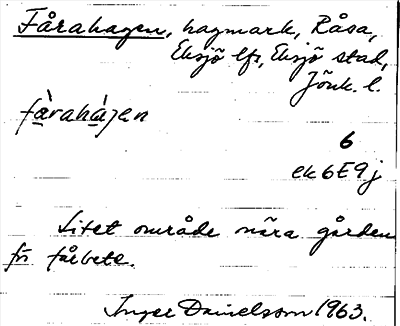 Fårahagen, hagmark, Råsa,
Eksjö lfs, Eksjö stad,
Jönk. l.
fà̱rahá̱jen
6
ek 6E9j
Litet område nära gården
för fårbete.
Inger Danielsson 1963.